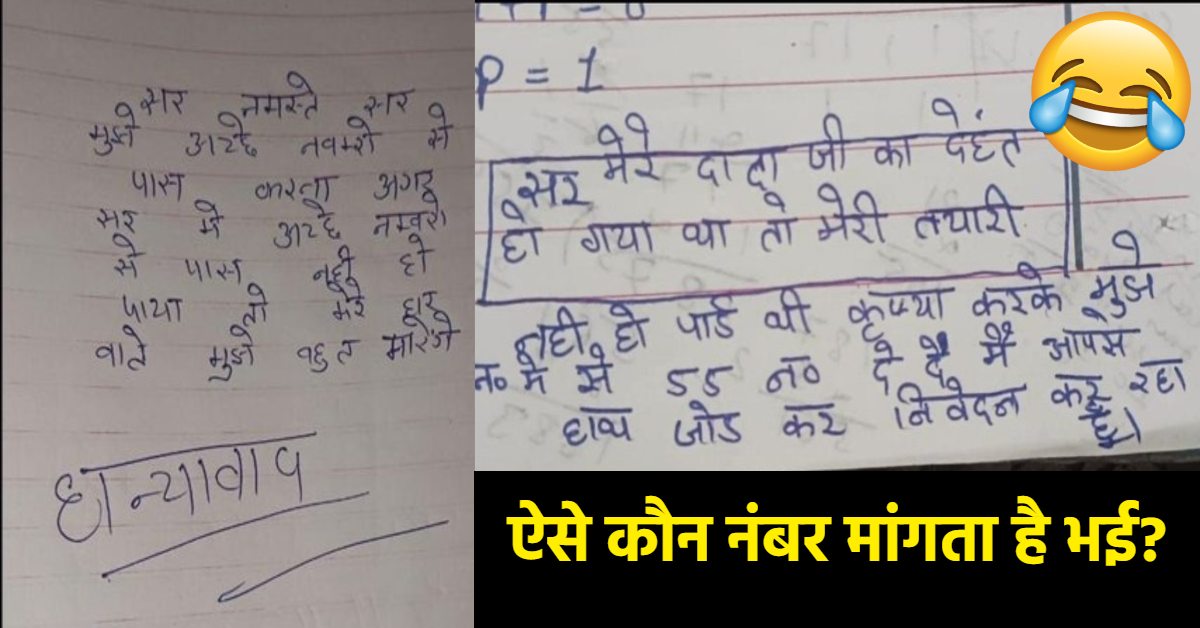 सर नमस्ते सर
मुझे अच्छे नवम्रो से
पास करना अगर
सर मे अच्छे नम्बरो
से पास नही हो
पाया तो मेरे
वाले मुझे बहुत मारेंगे
धान्यावाद
P = 1
सर मेरे दादा जी का देहंत
हो गया था तो मेरी तयारी
नही हो पाई थी कृप्या करके मुझे
न० मे से 55 न० दे दे मैं आपसे
हाथ जोड कर निवेदन कर रहा
हूँ।
ऐसे कौन नंबर मांगता है भई?